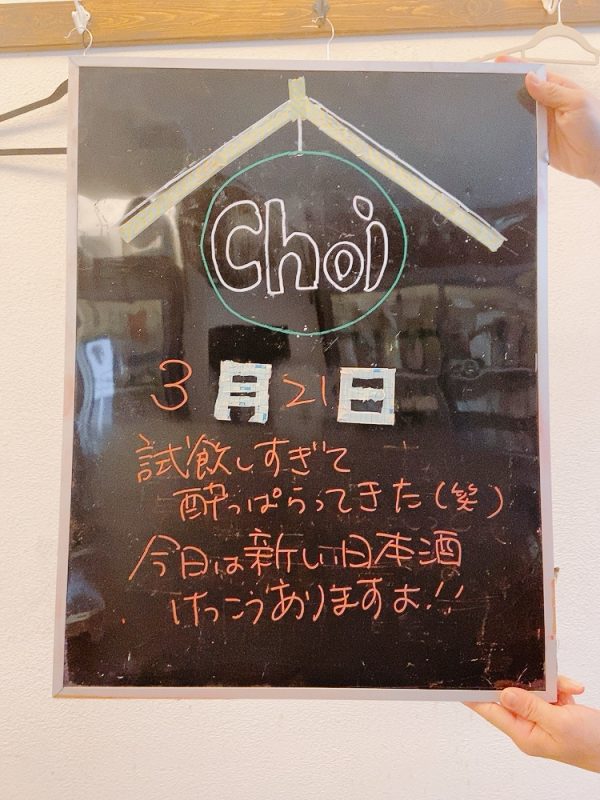 Choi
3月21日
試飲しすぎて
酔っぱらってきた(笑)
今日は新しい日本酒
けっこうありますよ!!